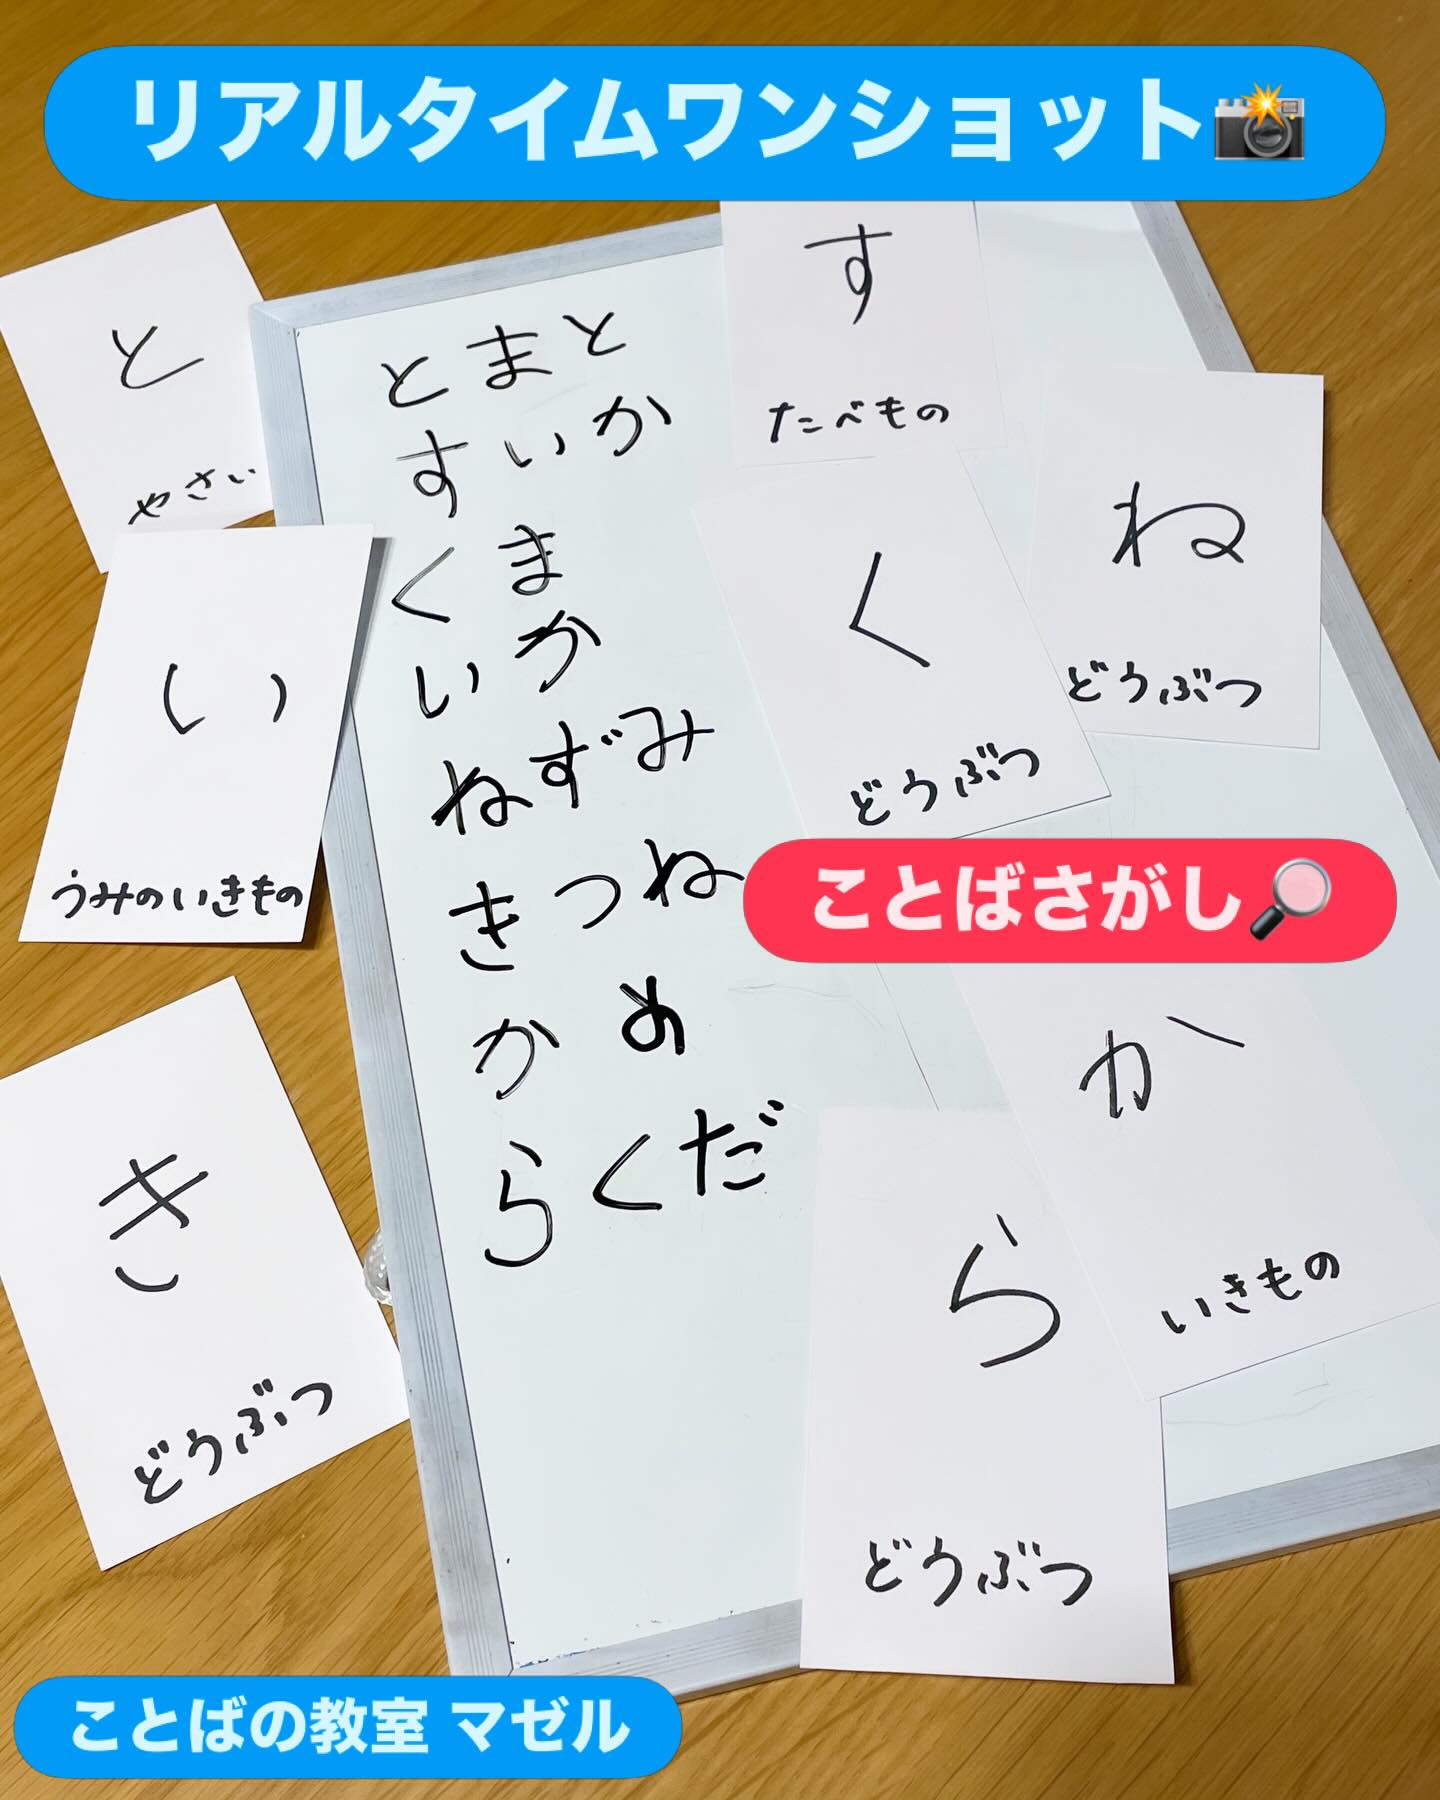 リアルタイムワンショット📸
と
やさい
す
たべもの
とまと
すいか
くま
いか
ねずみ
きつね
かめ
らくだ
い
うみのいきもの
く
どうぶつ
ね
どうぶつ
ことばさがし🔎
き
どうぶつ
か
いきもの
ら
どうぶつ
ことばの教室 マゼル